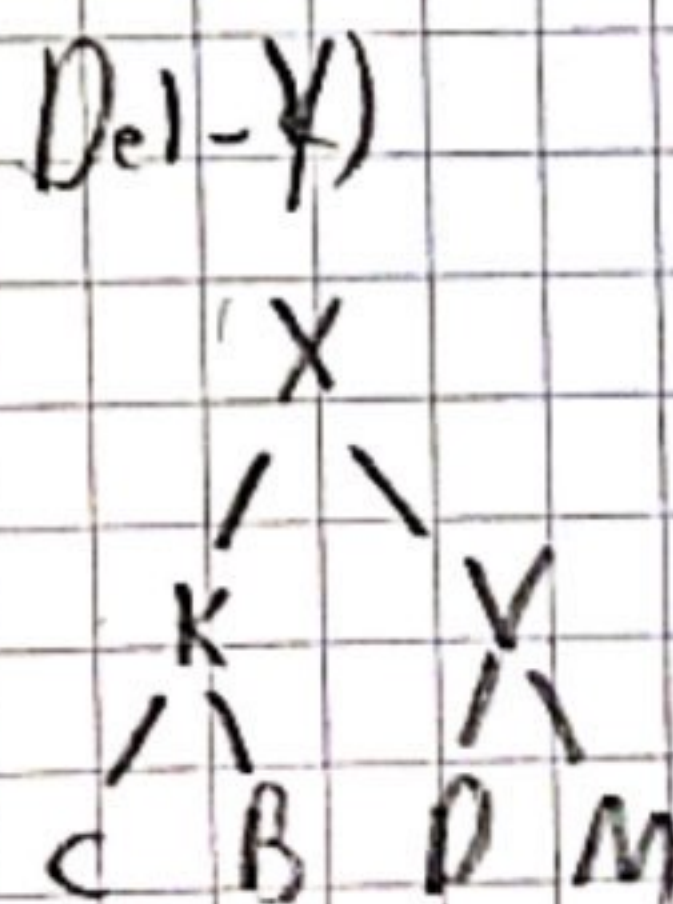 Del-Y)
X
K V
C B D M